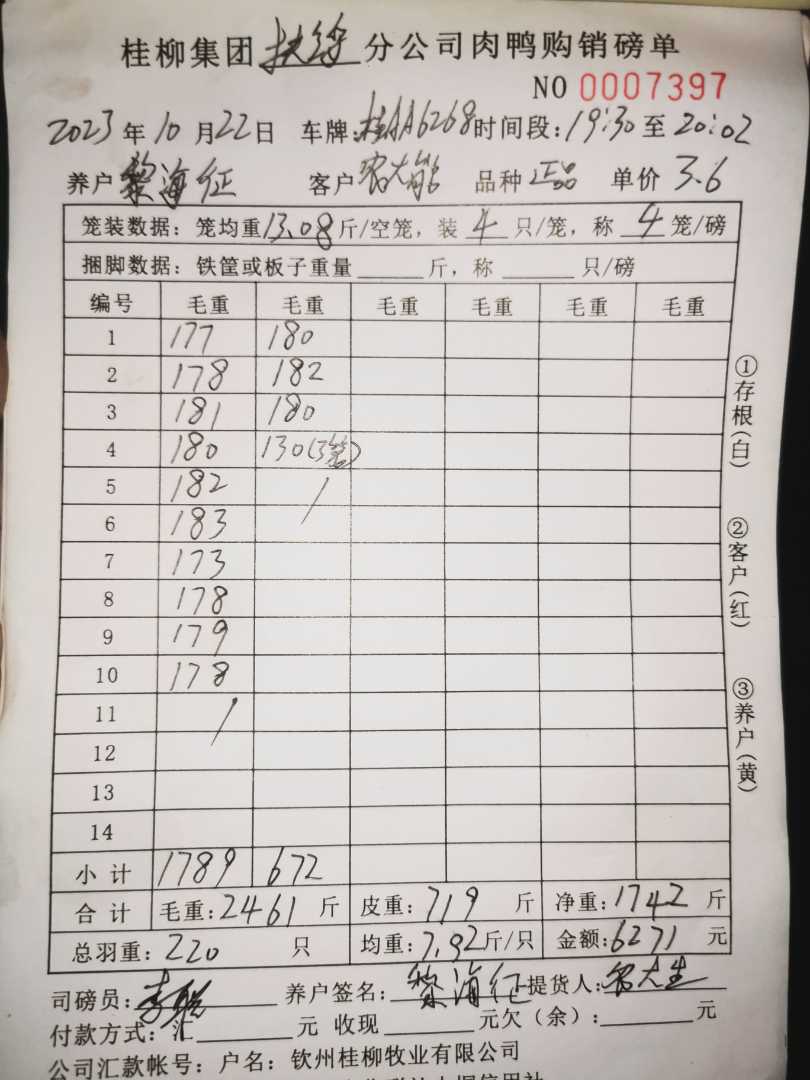 桂柳集团扶绥分公司肉鸭购销磅单
NO 0007397
2023年10月22日 车牌:桂AA6268时间段:19:30至20:02
养户黎海征 客户 品种正品 单价3.6
笼装数据: 笼均重13.08斤/空笼, 装4只/笼, 称4笼/磅
捆脚数据: 铁筐或板子重量 斤, 称 只/磅
编号 毛重 毛重 毛重 毛重 毛重 毛重
1 177 180
2 178 182
3 181 180
4 180 130(3笼)
5 182 /
6 183
7 173
8 178
9 179
10 178
11 /
12
13
14
小计 1789 672
合计 毛重:2461斤 皮重:719斤 净重:1742斤
总羽重:220只 均重:7.92斤/只 金额:6271元
司磅员: 养户签名:黎海征 提货人:
付款方式: 汇 元 收现 元欠(余): 元
公司汇款帐号: 户名: 钦州桂柳牧业有限公司
①存根(白)
②客户(红)
③养户(黄)